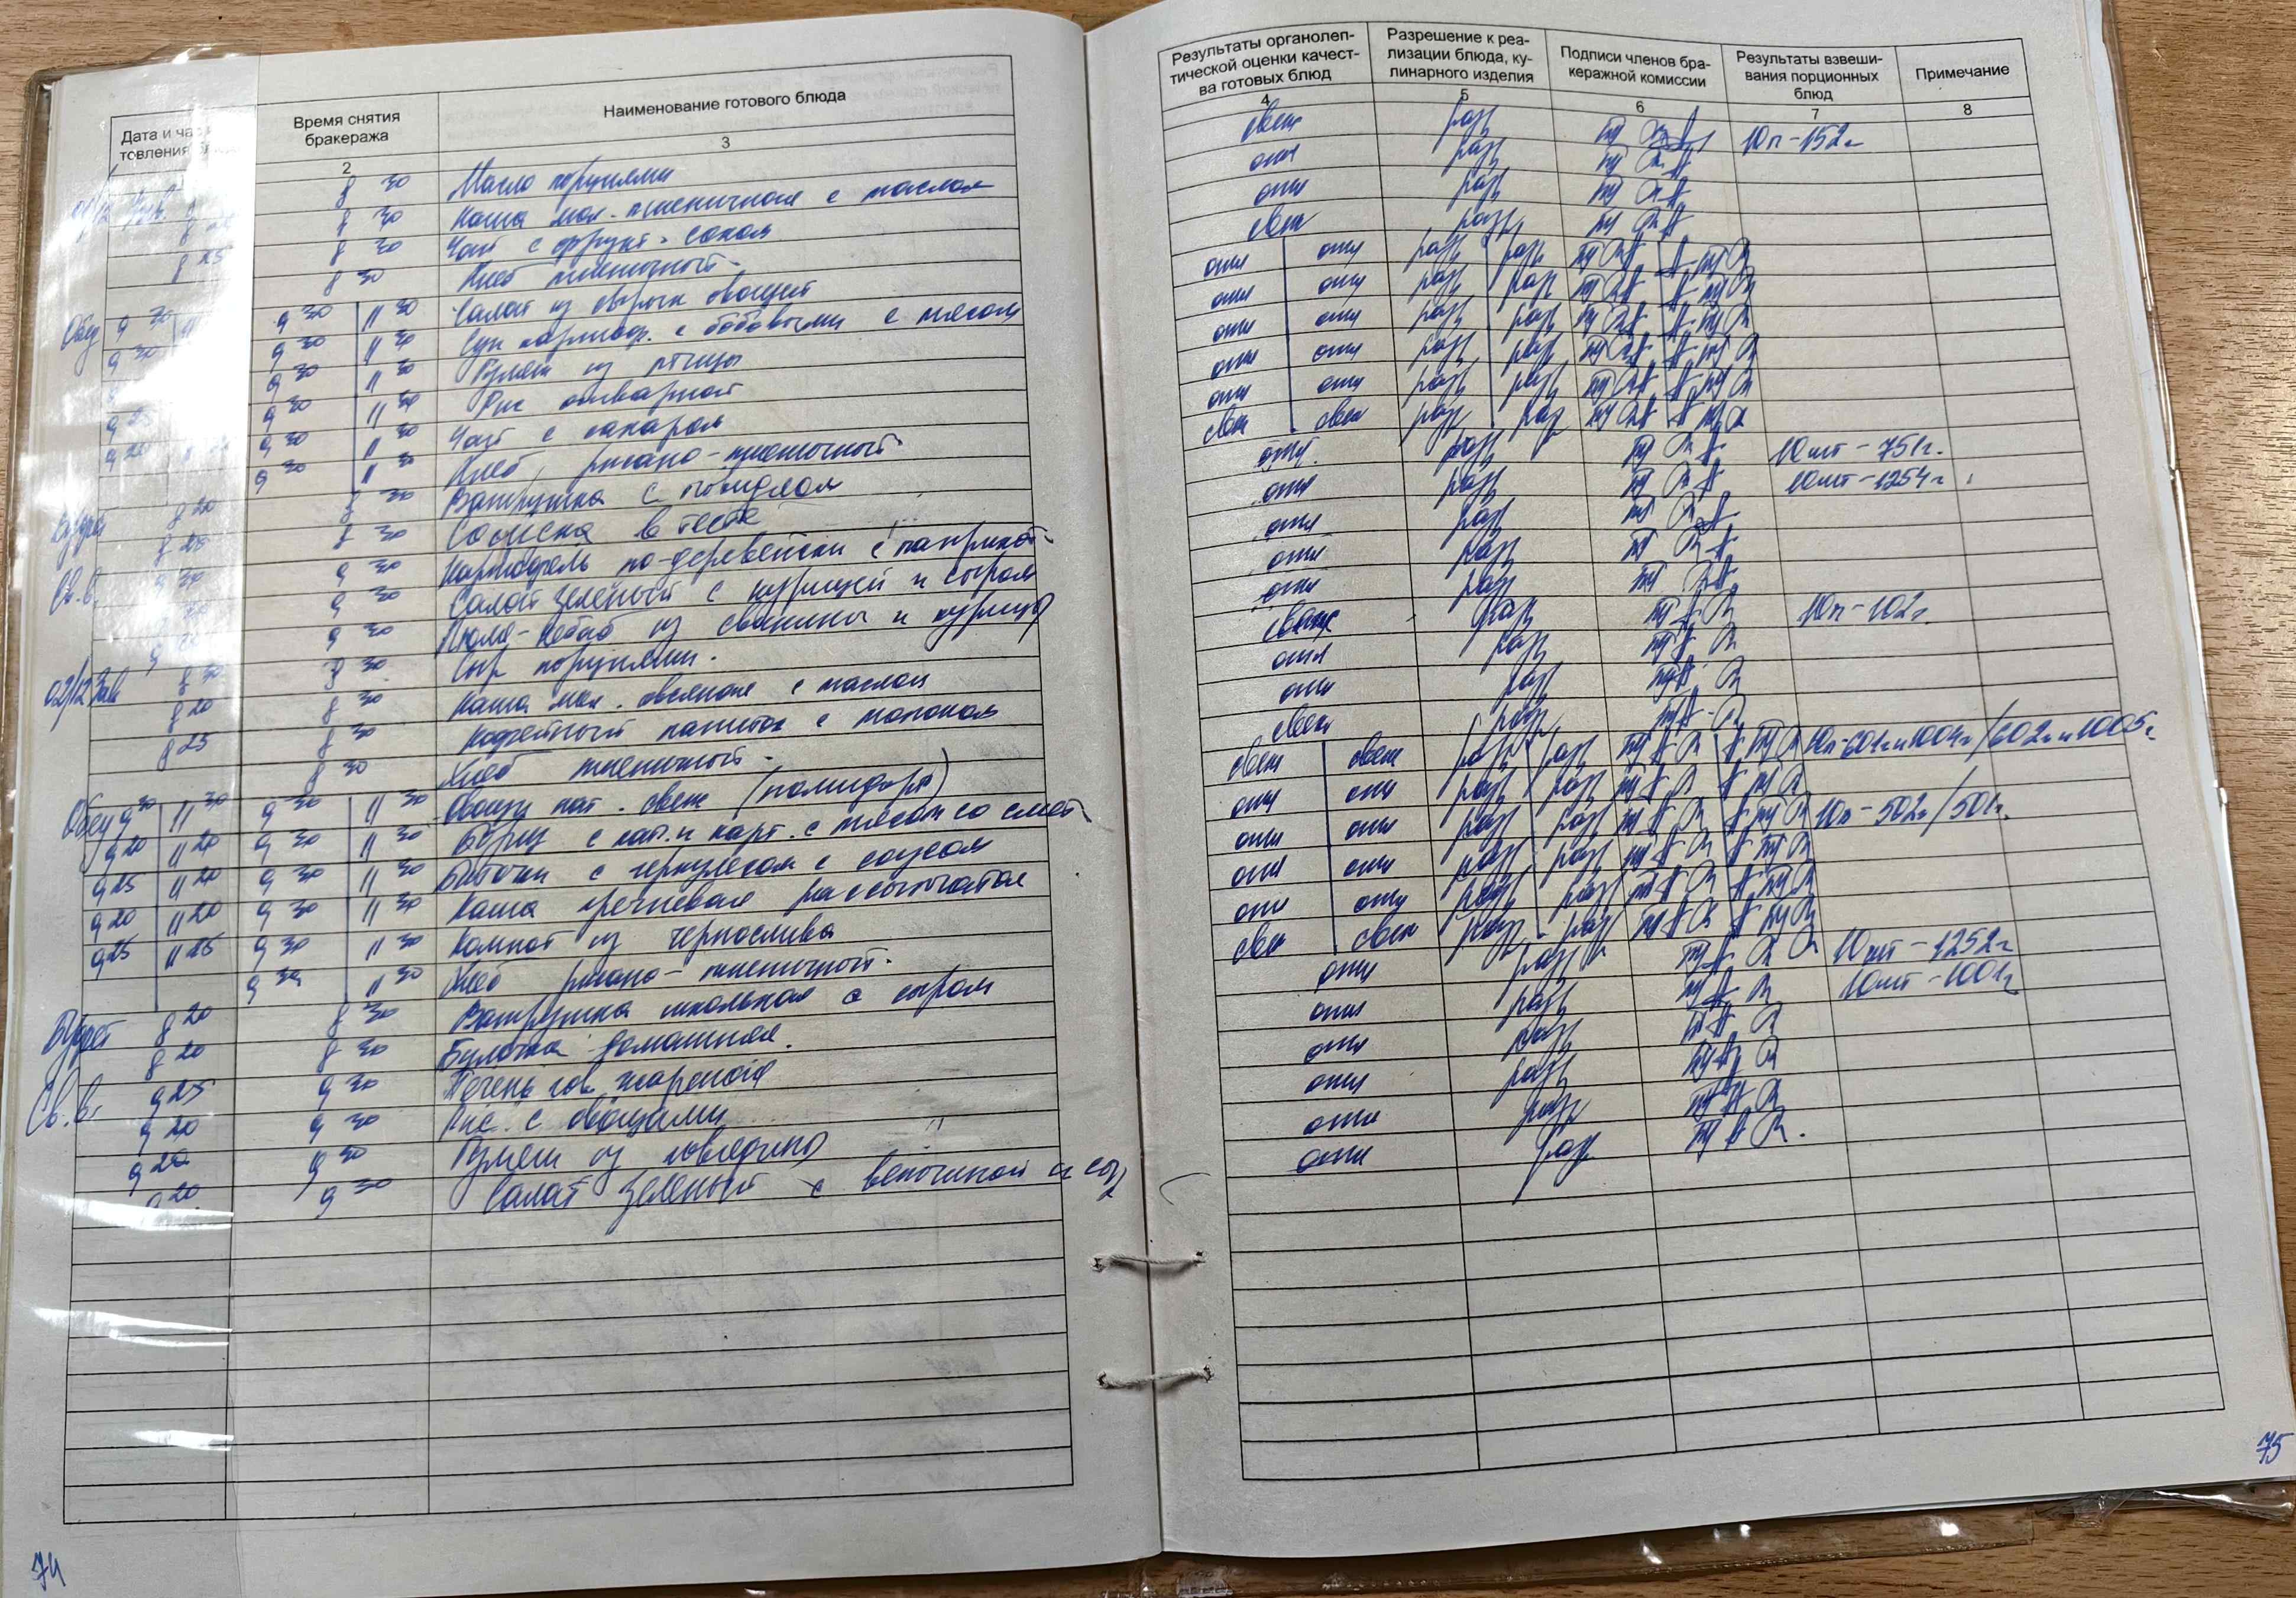 Дата и час
товления
Время снятия
бракеража
Наименование готового блюда
2
3
8 30 Масло порциями
8 30 Каша мол. пшеничная с маслом
8 30 Чай с фрукт. соком
8 25 8 30 Хлеб пшеничный.
Обед 9 30 9 30 11 30 Салат из свежих овощей
9 30 9 30 11 30 Суп картоф. с бобовыми с мясом
9 30 11 30 Гуляш из птицы
9 25 9 30 11 30 Рис отварной
9 20 9 30 11 30 Чай с сахаром
9 30 11 30 Хлеб ржано-пшеничный
Буфет 8 20 8 30 Ватрушка с повидлом
8 25 8 30 Сосиска в тесте
Св. в. 9 30 Картофель по-деревенски с паприкой
9 30 Салат зеленый с курицей и сыром
9 30 Люля-кебаб из свинины и курицы
02/12 Зав 8 30 8 30 Сыр порциями.
8 20 8 30 Каша мол. овсяная с маслом
8 25 8 30 Кофейный напиток с молоком
8 30 Хлеб пшеничный.
Обед 9 30 11 30 9 30 11 30 Овощи нат. свеж (помидоры)
9 20 11 20 9 30 11 30 Борщ с кап. и карт. с мясом со смет.
9 25 11 20 9 30 11 30 Биточки с геркулесом с соусом
9 20 11 20 9 30 11 30 Каша гречневая рассыпчатая
9 25 11 25 9 30 11 30 Компот из чернослива
9 30 11 30 Хлеб ржано-пшеничный.
Буфет 8 20 8 30 Ватрушка школьная с сыром
8 20 8 30 Булочка домашняя.
Св. в. 9 25 9 30 Печень гов. жареная
9 20 9 30 Рис с овощами
9 20 9 30 Гуляш из говядины
9 20 9 30 Салат зеленый с ветчиной и
74
Результаты органолеп-
тической оценки качест-
ва готовых блюд
Разрешение к реа-
лизации блюда, ку-
линарного изделия
Подписи членов бра-
керажной комиссии
Результаты взвеши-
вания порционных
блюд
Примечание
4
5
6
7
8
свеж разр 10п - 152г
отл разр
отл разр
свеж разр
отл отл разр разр
отл отл разр разр
отл отл разр разр
отл отл разр разр
отл отл разр разр
свеж свеж разр разр
отл. разр 10шт - 751г.
отл разр 10шт - 1254г
отл разр
отл разр
отл разр
свеж разр 10п - 102г.
отл разр
отл разр
свеж разр
свеж свеж разр разр 10п-601г и 1004г/602г и 1005г
отл отл разр разр
отл отл разр разр 10п - 502г/501г.
отл отл разр разр
отл отл разр разр
свеж свеж разр разр
отл разр 10шт - 1252г
отл разр 10шт - 1001г
отл разр
отл разр
отл разр
отл разр
75